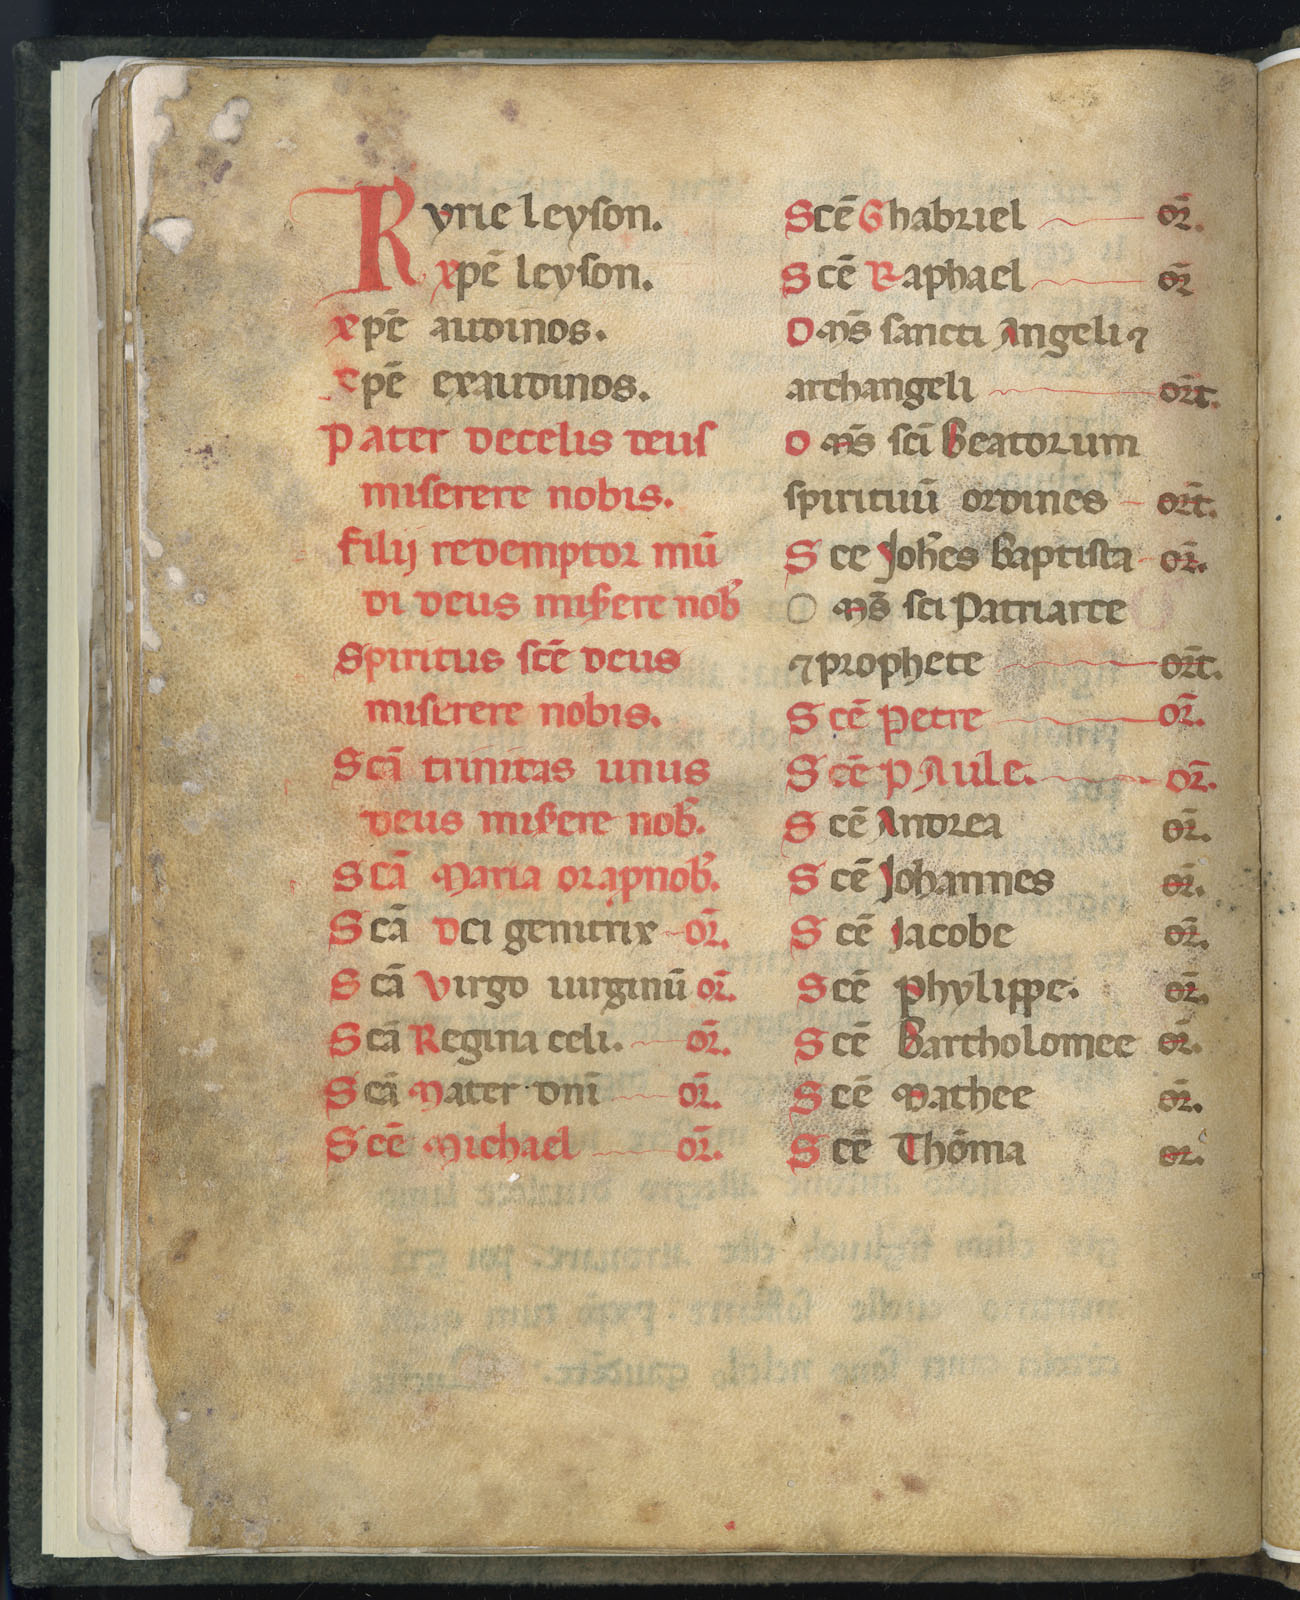 Kyrie leyson.
xpē leyson.
xpē audinos.
xpē exaudinos.
Pater decelis deus
miserere nobis.
filij redemptor mū
di deus misere nob
Spiritus scē deus
miserere nobis.
Scā trinitas unus
deus misere nob.
Scā Maria orapnob.
Scā Dei genitrix or̄.
Scā Virgo uirginū or̄.
Scā Regina celi. or̄.
Scā Mater dnī or̄.
Scē Michael or̄.
Scē Ghabriel or̄.
Scē Raphael or̄
Om̄s sancti Angeli ⁊
archangeli or̄t.
Om̄s scī Beatorum
spirituū ordines or̄t.
Sce Johes Baptista or̄.
Om̄s sci Patriarce
⁊ prophete or̄t.
Scē Petre or̄.
Scē pAule. or̄.
Scē Andrea or̄.
Scē Johannes or̄.
Scē Jacobe or̄.
Scē phylippe. or̄.
Scē Bartholomee or̄.
Scē Mathee or̄.
Scē Thōma or̄.